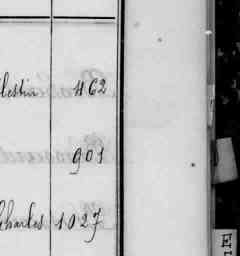 lestin 462
901
Charles 1027
E